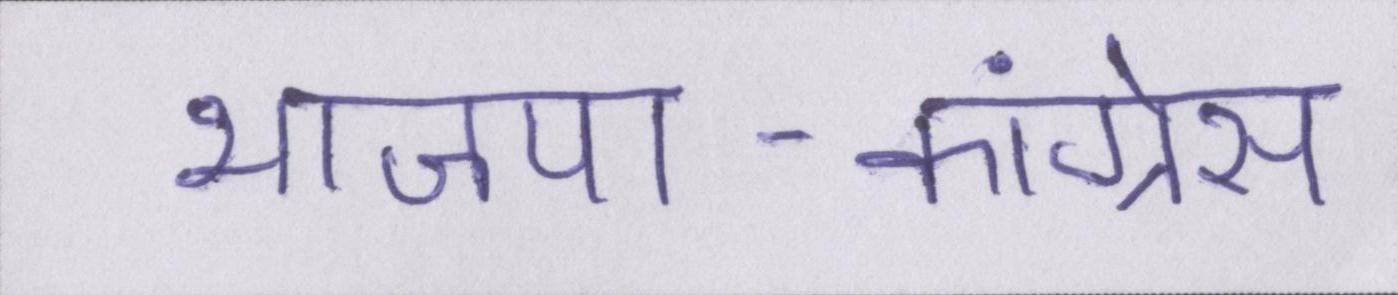 भाजपा - कांग्रेस